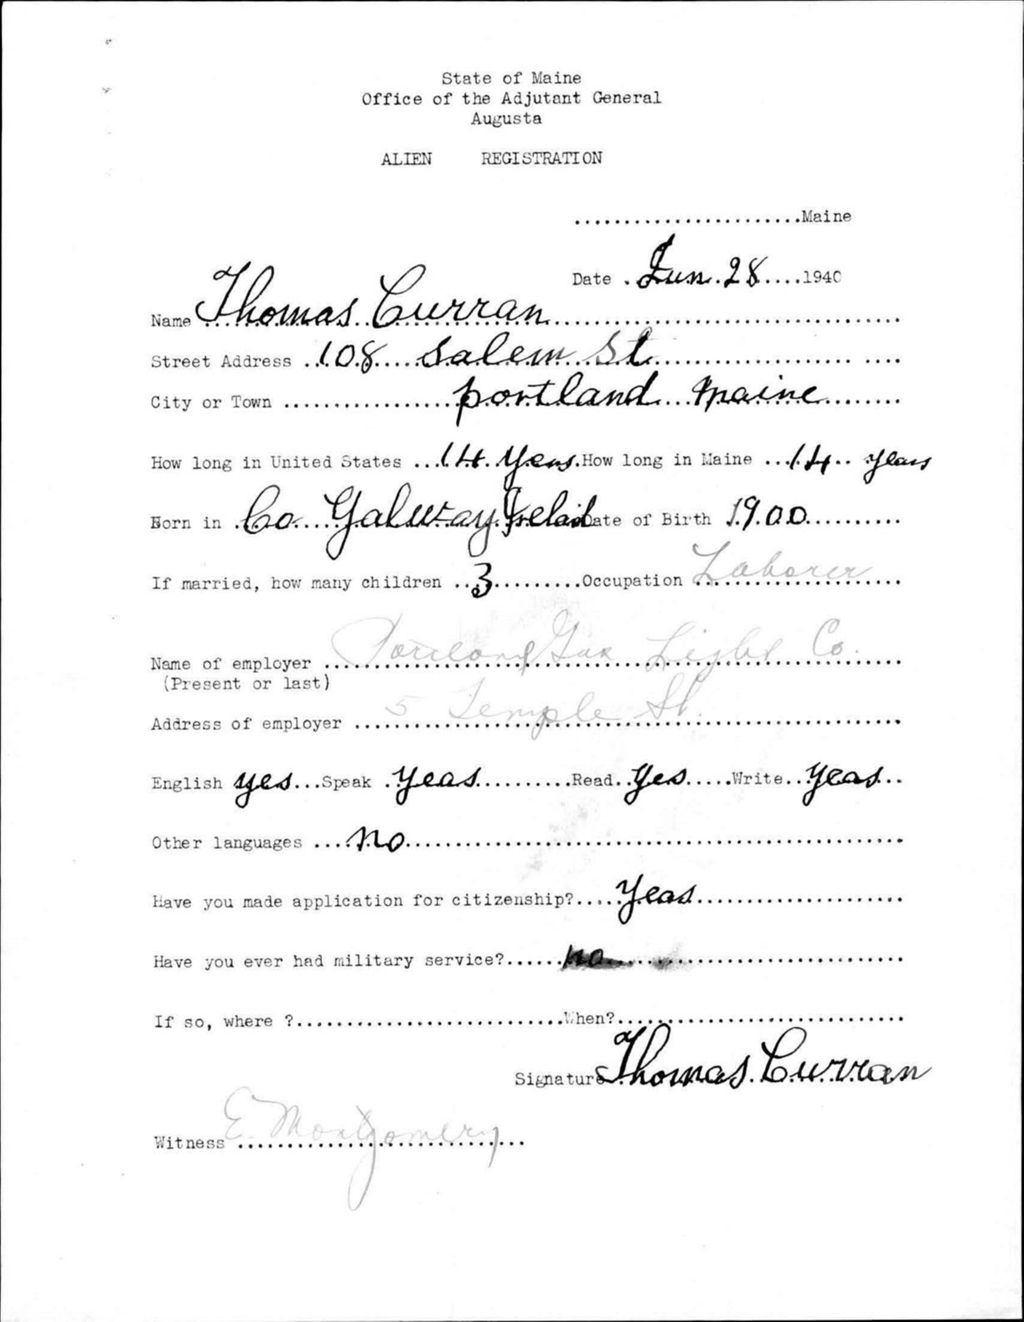 State of Maine
Office of the Adjutant General
Augusta
ALIEN REGISTRATION
......................Maine
Date . Jun. 28 ....1940
Name Thomas Curran
Street Address ..108.... Salem St.
City or Town ................. portland maine
How long in United States ...14 Years. How long in Maine ...14.. years
Born in . Co. Galway Irelaid Date of Birth 1900
If married, how many children ..3.........Occupation Laborer
Name of employer Portland Gas Light Co.
(Present or last)
Address of employer 5 Temple St.
English yes...Speak .Yeas.........Read..Yes.....Write..Yeas..
Other languages ....no
Have you made application for citizenship?.....Yeas
Have you ever had military service?......no
If so, where ?...........................When?.............................
Signature Thomas. Curran
Witness E. Montgomery